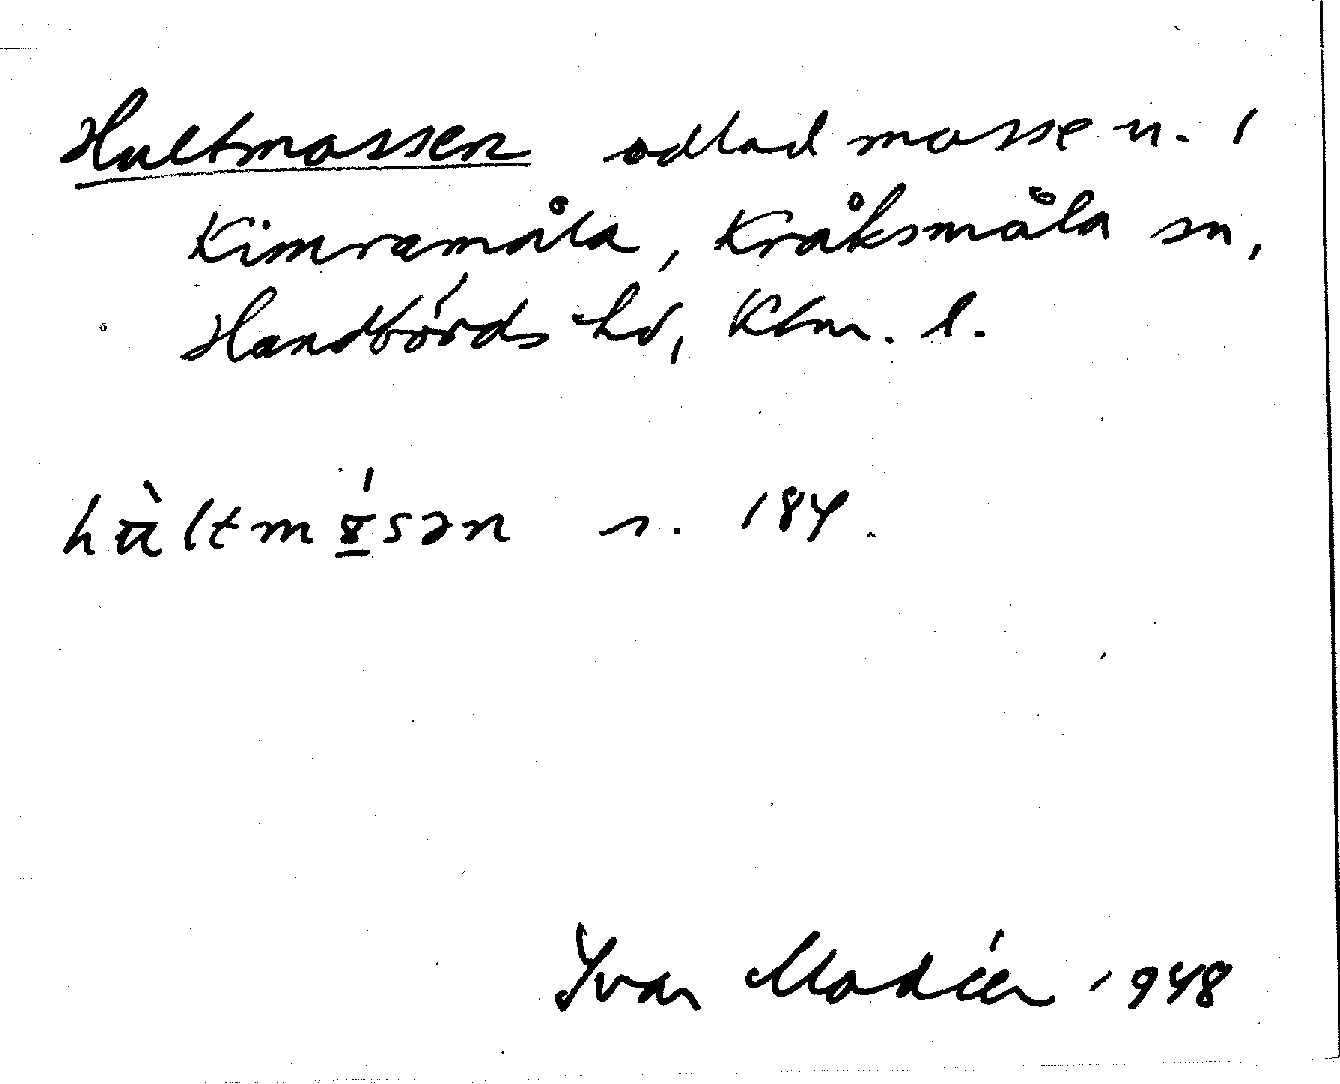 Hultmossen odlad mosse u. 1
Kimramåla, Kråksmåla sn,
Handbörds hd, Klm. l.
hùltmósən s. 184.
Yvar Modéer 1948